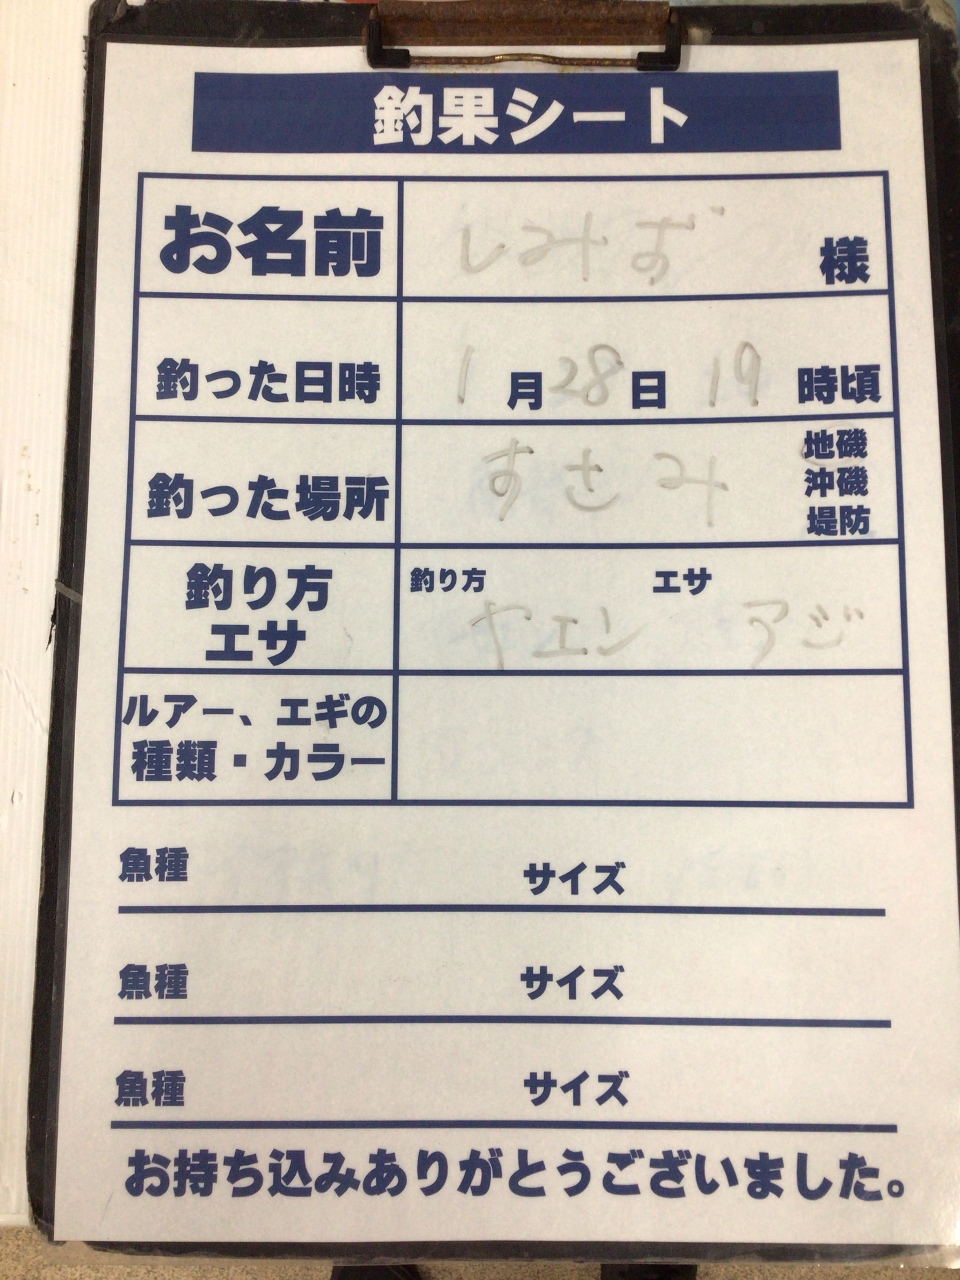 釣果シート
お名前 しみず 様
釣った日時 1月28日 19時頃
釣った場所 すさみ 地磯
沖磯
堤防
釣り方
エサ
釣り方 エサ
ヤエン アジ
ルアー、エギの
種類・カラー
魚種 サイズ
魚種 サイズ
魚種 サイズ
お持ち込みありがとうございました。